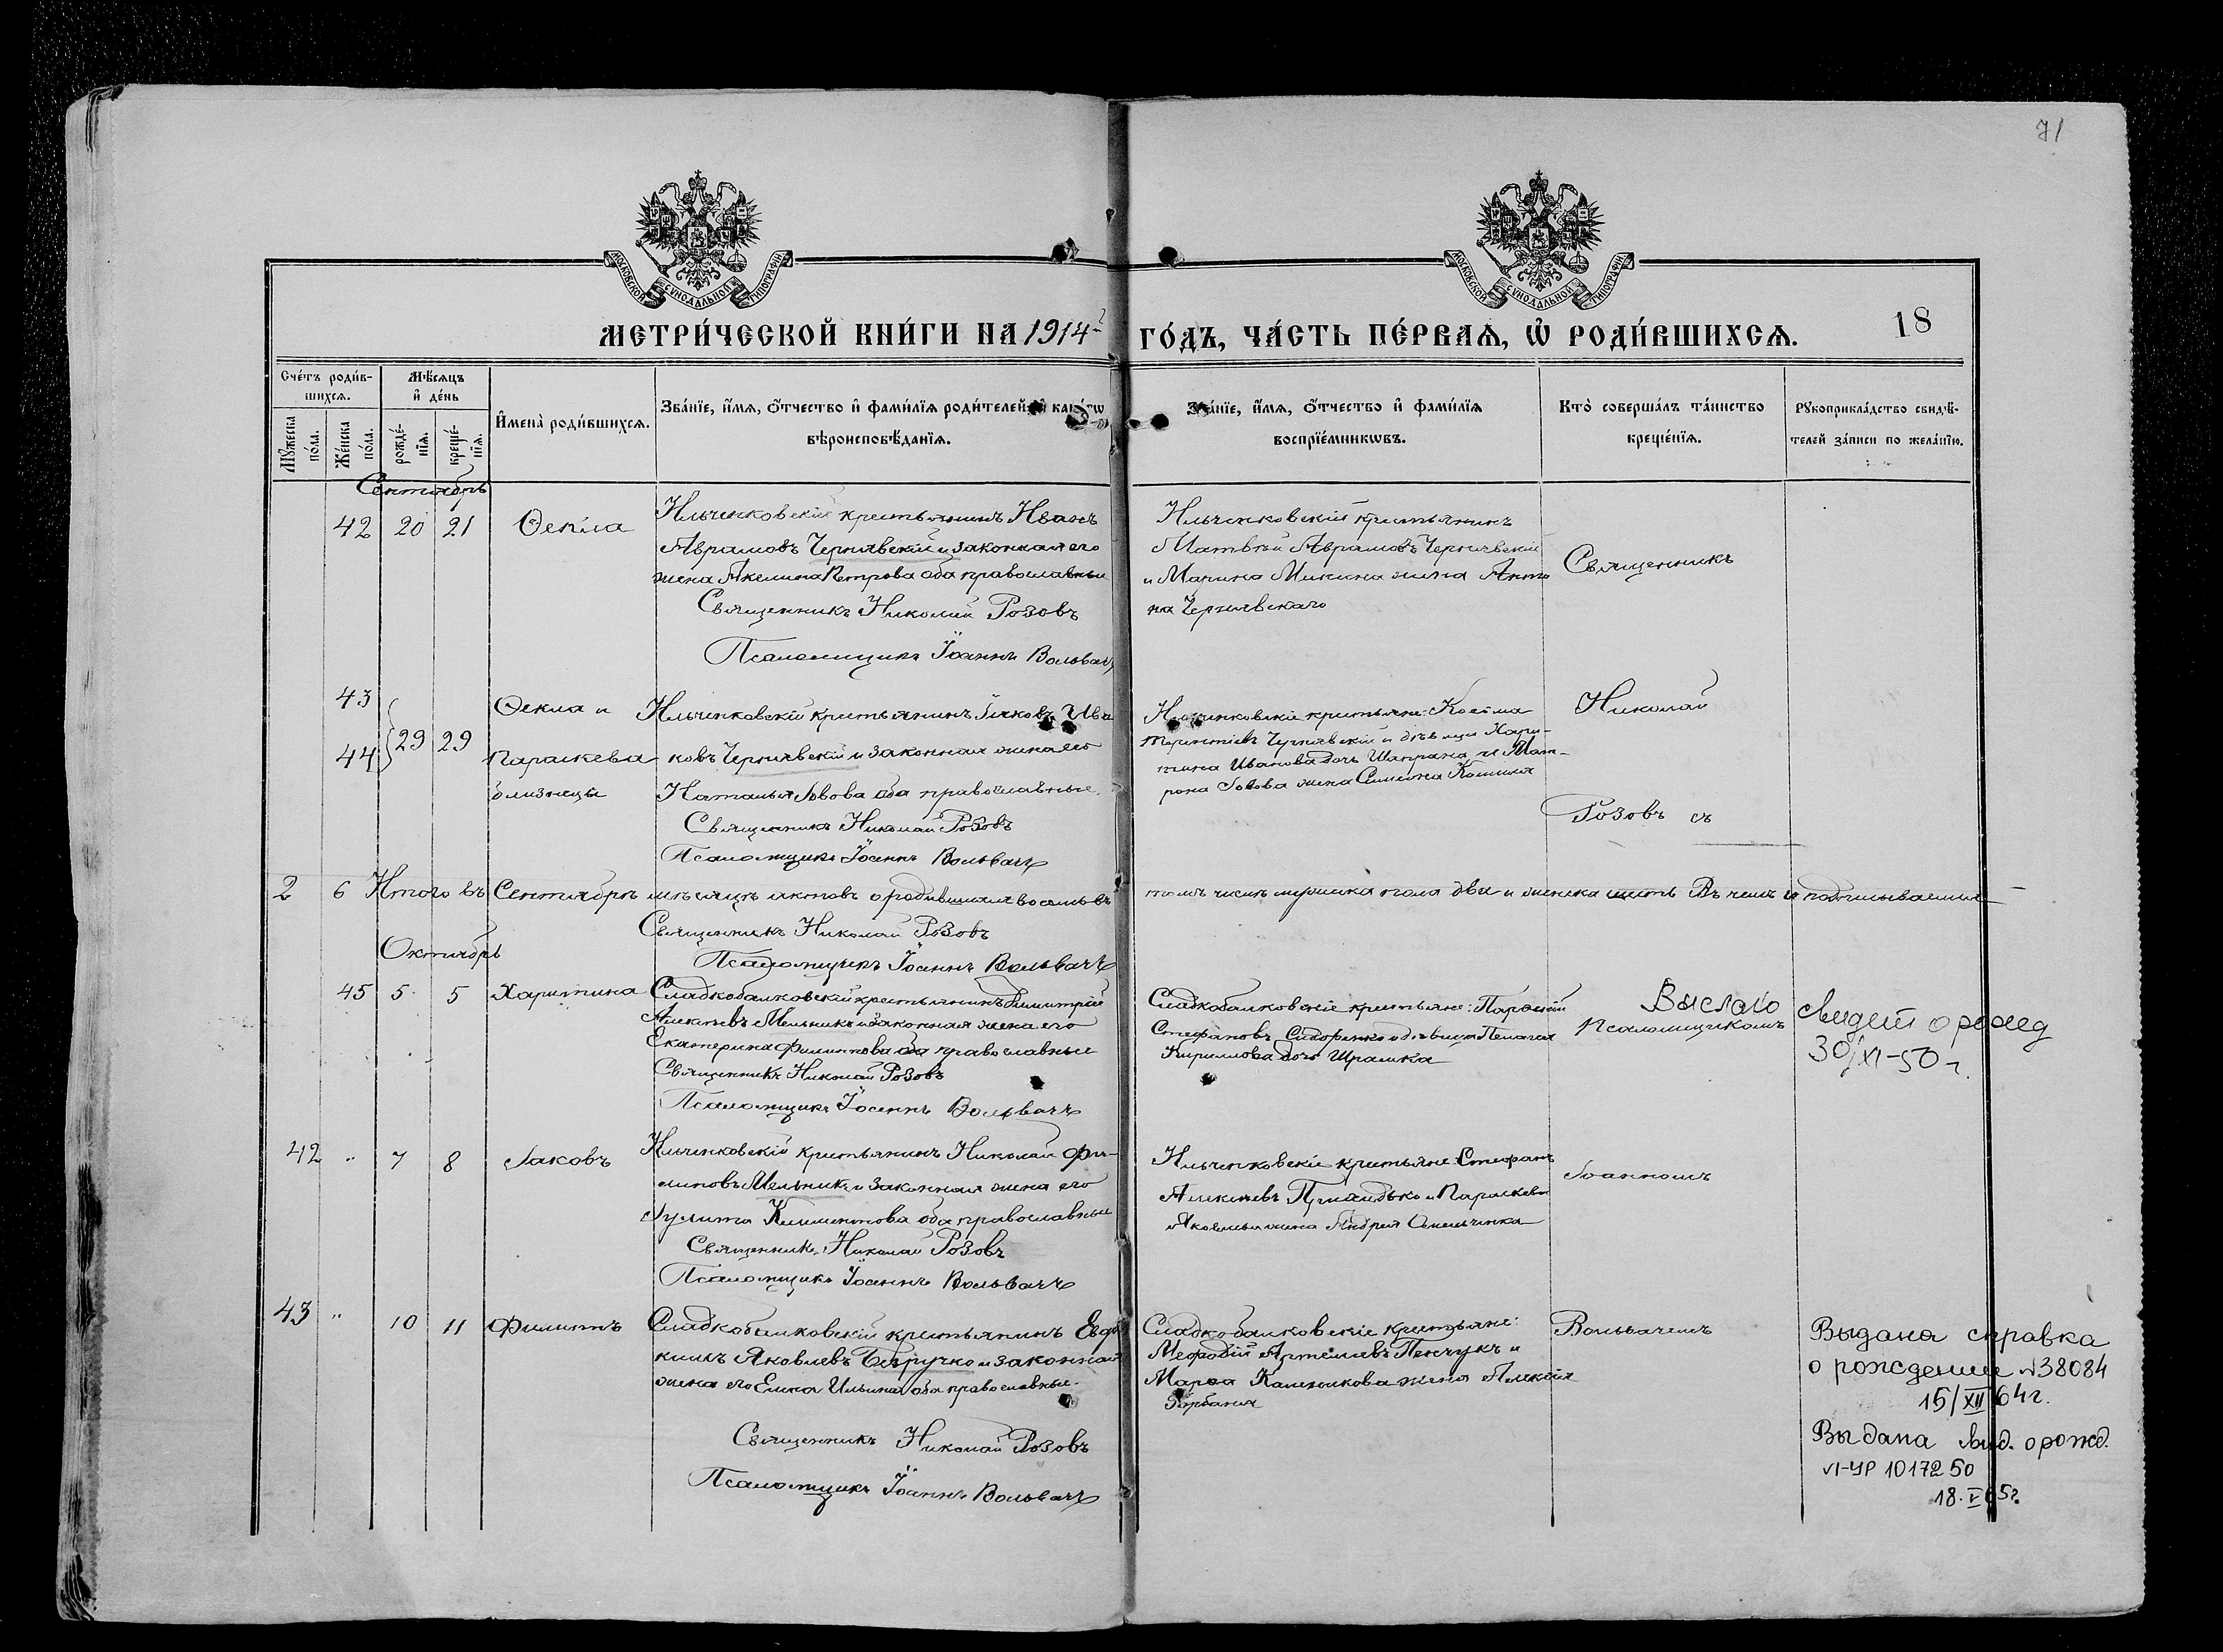 71
МОСКОВСКОЙ СѴНОДАЛЬНОЙ ТИПОГРАФІИ
МОСКОВСКОЙ СѴНОДАЛЬНОЙ ТИПОГРАФІИ
МЕТРИ́ЧЕСКОЙ КНИ́ГИ НА 1914 ГО́ДЪ, ЧА́СТЬ ПЕ́РВАѦ, Ѿ РОДИ́ВШИХСѦ.
18
Сче́тъ роди́в-
шихсѧ.
Мѣ́сѧцъ
и҆ де́нь
Мꙋ́жеска по́ла.
Же́нска по́ла.
рожде́-
нїѧ.
креще́-
нїѧ.
И҆мена̀ роди́вшихсѧ.
Зва́нїе, и҆́мѧ, ѻ҆́тчество и҆ фами́лїѧ роди́телей, и҆ како́гѡ
вѣроисповѣ́данїѧ.
Зва́нїе, и҆́мѧ, ѻ҆́тчество и҆ фами́лїѧ
воспрїе́мникѡвъ.
Кто̀ соверша́лъ та́инство
креще́нїѧ.
Рꙋкоприкла́дство свидѣ́-
телей за́писи по жела́нїю.
Сентябрь
42 20 21 Ѳекла
Ильченковскій крестьянинъ Иванъ
Аврамовъ Чернявскій и законная его
жена Акелина Петрова оба православные
Священникъ Николай Розовъ
Псаломщикъ Іоаннъ Вольвачъ
Ильченковскій крестьянинъ
Матвѣй Аврамовъ Чернявскій
и Марина Микина жена Анто
на Чернявскаго
Священникъ
43
44
29 29
Ѳекла и
Параскева
близнецы
Ильченковскій крестьянинъ Іаковъ Ива
новъ Чернявскій и законная жена его
Наталья Іовова оба православные.
Священникъ Николай Розовъ
Псаломщикъ Іоаннъ Вольвачъ
Ильченковскіе крестьяне: Косьма
Терентіевъ Чернявскій и дѣвица Хари-
тина Иванова дочь и Мат-
рона Іовова жена Симеона
Николай
Розовъ съ
2 6 Итого въ Сентябрѣ мѣсяцѣ актовъ о родившихся восемь въ томъ числѣ мужска пола два и женска шесть Въ чемъ и подписываемся
Священникъ Николай Розовъ
Псаломщикъ Іоаннъ Вольвачъ
Октябрь
45 5 5 Харитина
Сладкобалковскій крестьянинъ Димитрій
Алексѣевъ Мельникъ и законная жена его
Екатерина Филиппова оба православные
Священникъ Николай Розовъ
Псаломщикъ Іоаннъ Вольвачъ
Сладкобалковскіе крестьяне: Парѳеній
Стефановъ Сидоренко и дѣвица Пелагея
Кириллова дочь Шрамка
Псаломщикомъ
Выслано свидет о рожд
30/XI-50 г.
42 " 7 8 Іаковъ
Ильченковскій крестьянинъ Николай Фи-
липповъ Мельникъ и законная жена его
Іулита Климентова оба православные
Священникъ Николай Розовъ
Псаломщикъ Іоаннъ Вольвачъ
Ильченковскіе крестьяне: Стефанъ
Алексѣевъ и Параскева
жена Андрея Омельченка
Іоанномъ
43 " 10 11 Филиппъ
Сладкобалковскій крестьянинъ Евдо
кимъ Яковлевъ Безручко и законная
жена его Елена Ильина оба православные.
Священникъ Николай Розовъ
Псаломщикъ Іоаннъ Вольвачъ
Сладкобалковскіе крестьяне:
Меѳодій Артемьевъ Пенчукъ и
Марѳа Калинникова жена Алексѣя
Горбаня
Вольвачемъ
Выдана справка
о рождении №38084
15/XII 64г.
Выдана свид. о рожд.
VI-УР 1017250
18.V 65г.